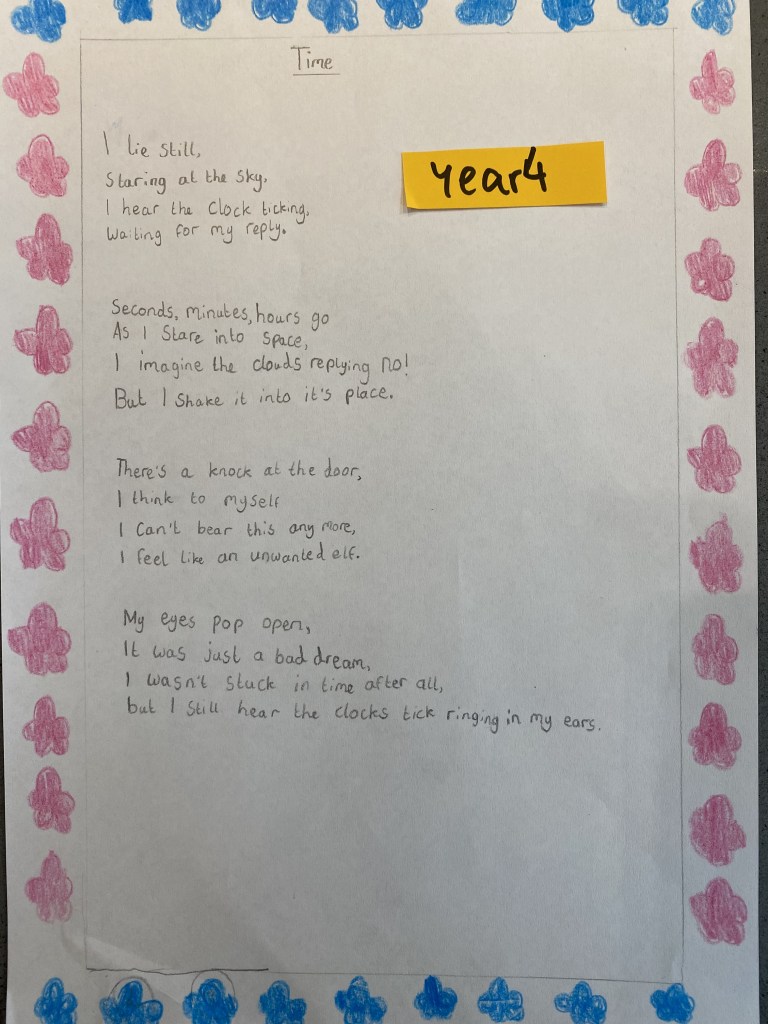 Time
year4
I lie still,
Staring at the sky,
I hear the clock ticking,
Waiting for my reply.
Seconds, minutes, hours go
As I Stare into space,
I imagine the clouds replying no!
But I shake it into it's place.
There's a knock at the door,
I think to myself
I Can't bear this any more,
I feel like an unwanted elf.
My eyes pop open,
It was just a bad dream,
I wasn't stuck in time after all,
but I still hear the clocks tick ringing in my ears.